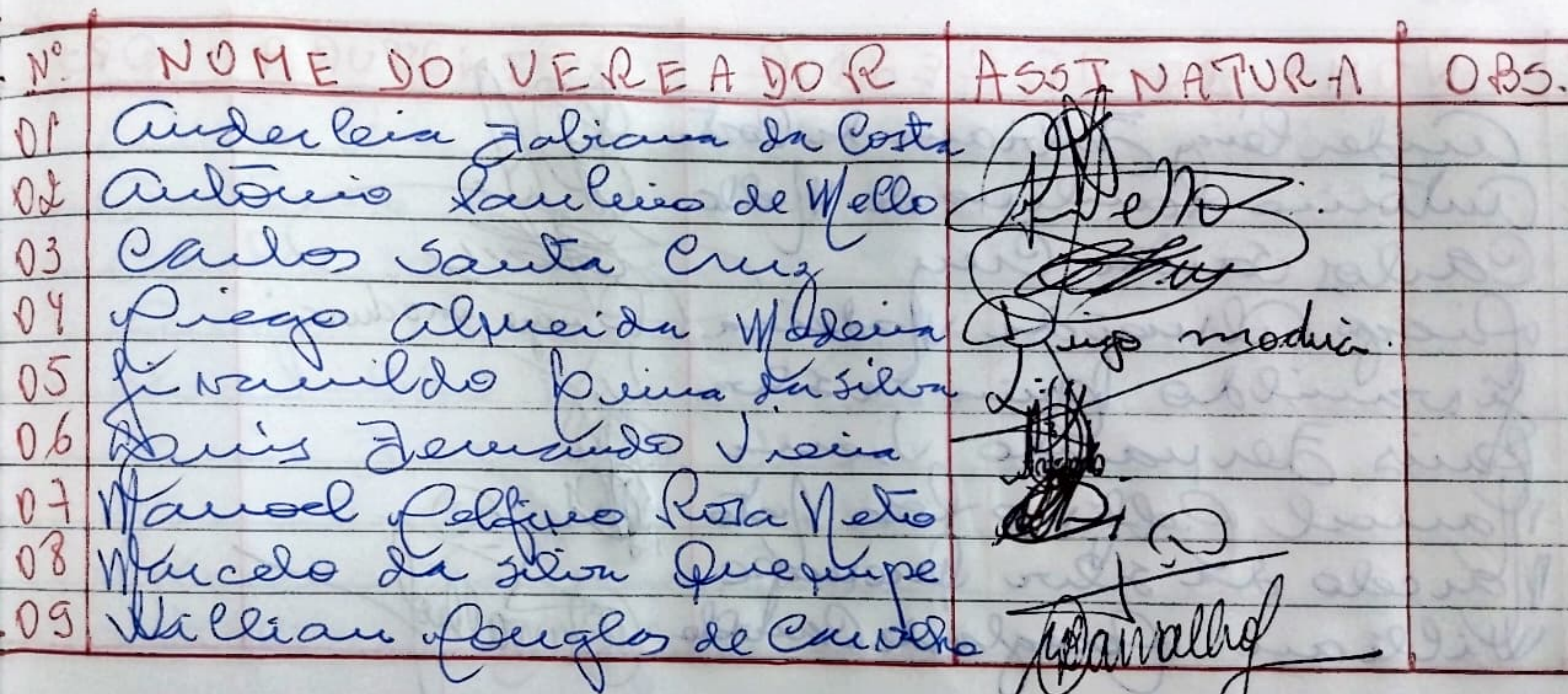 Nº NOME DO VEREADOR ASSINATURA OBS.
01 Anderleia Fabiana da Costa
02 Antônio Paulino de Mello
03 Carlos Santa Cruz
04 Diego Almeida Madeira Diego
05 Givanildo da Silva
06 Luis Fernando Vieira
07 Manoel Delfino Rosa Neto
08 Marcelo da Silva Quequipe
09 Willian Douglas de Carvalho Carvalho